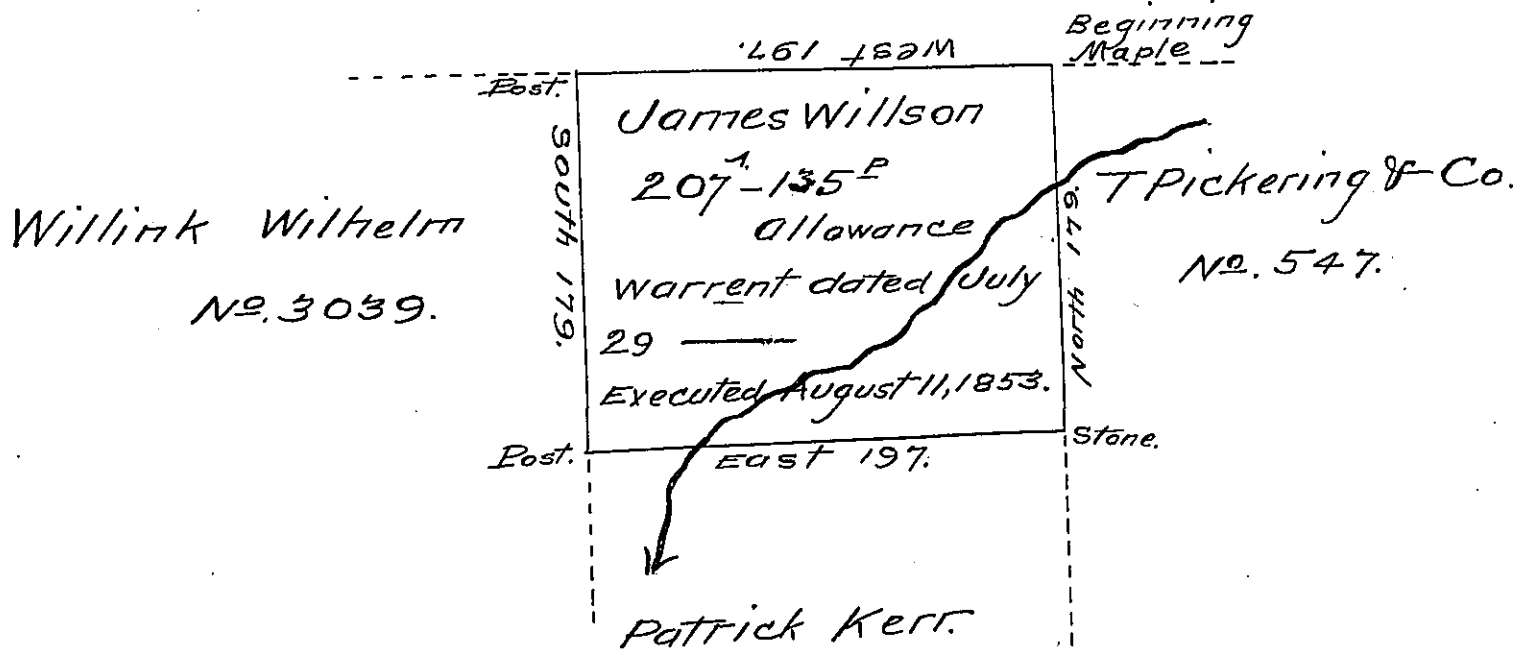 Beginning
Maple
West 197.
Post.
James Willson
207A-135P
allowance
Warrent dated July
29 ———
Executed August 11, 1853.
South 179.
North 179.
Willink Wilhelm
No. 3039.
T Pickering & Co.
No. 547.
Post.
East 197.
Stone.
Patrick Kerr.